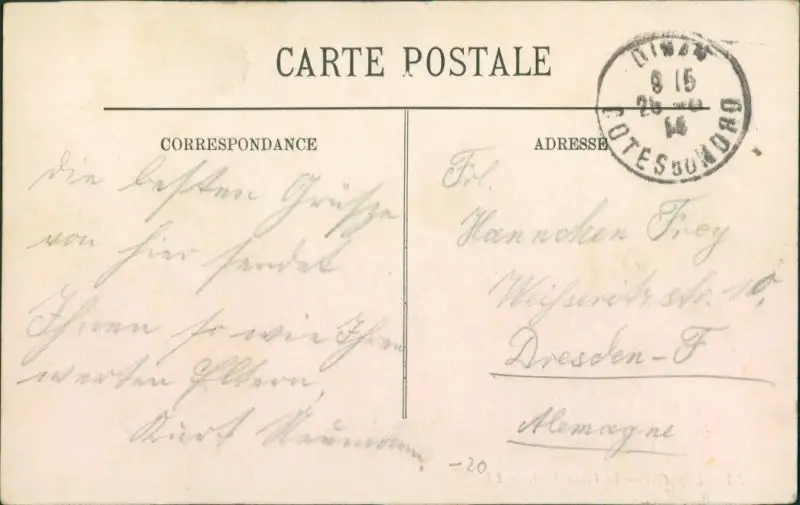 CARTE POSTALE
DINAN
9 15
14
COTES DU NORD
CORRESPONDANCE
die besten Grüße
von hier sendet
Ihnen so wie Ihren
werten Eltern,
Kurt Naumann.
ADRESSE
Frl.
Hannchen Frey
Weißeritzstr. 10,
Dresden-F
Alemagne
-20